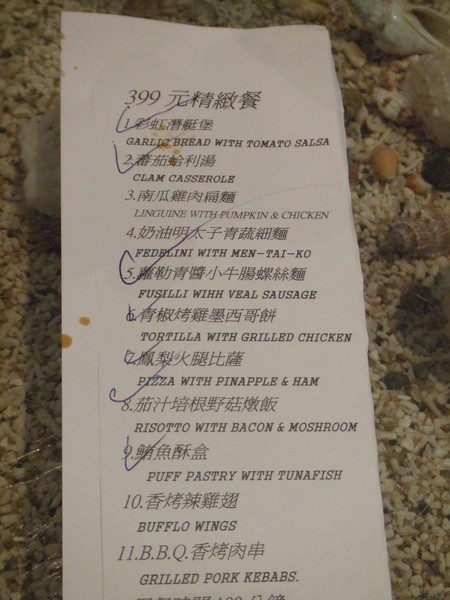 399 元精緻餐
1.彩虹潛艇堡
GARLIC BREAD WITH TOMATO SALSA
2.蕃茄蛤利湯
CLAM CASSEROLE
3.南瓜雞肉扁麵
LINGUINE WITH PUMPKIN & CHICKEN
4.奶油明太子青蔬細麵
FEDELINI WITH MEN-TAI-KO
5.蘿勒青醬小牛腸螺絲麵
FUSILLI WIHH VEAL SAUSAGE
6.青椒烤雞墨西哥餅
TORTILLA WITH GRILLED CHICKEN
7.鳳梨火腿比薩
PIZZA WITH PINAPPLE & HAM
8.茄汁培根野菇燉飯
RISOTTO WITH BACON & MOSHROOM
9.鮪魚酥盒
PUFF PASTRY WITH TUNAFISH
10.香烤辣雞翅
BUFFLO WINGS
11.B.B.Q.香烤肉串
GRILLED PORK KEBABS.